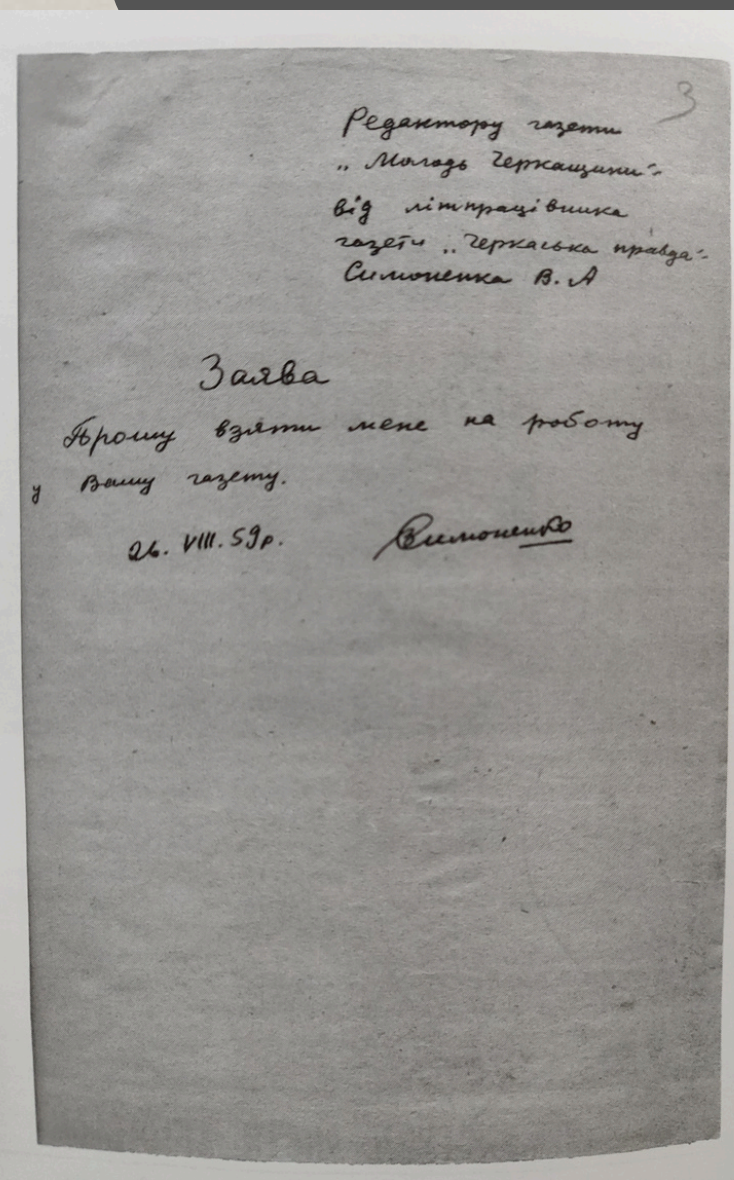 3
Редактору газети
„Молодь Черкащини"
від літпрацівника
газети „Черкаська правда"
Симоненка В. А
Заява
Прошу взяти мене на роботу
у Вашу газету.
26. VIII. 59р.
Симоненко